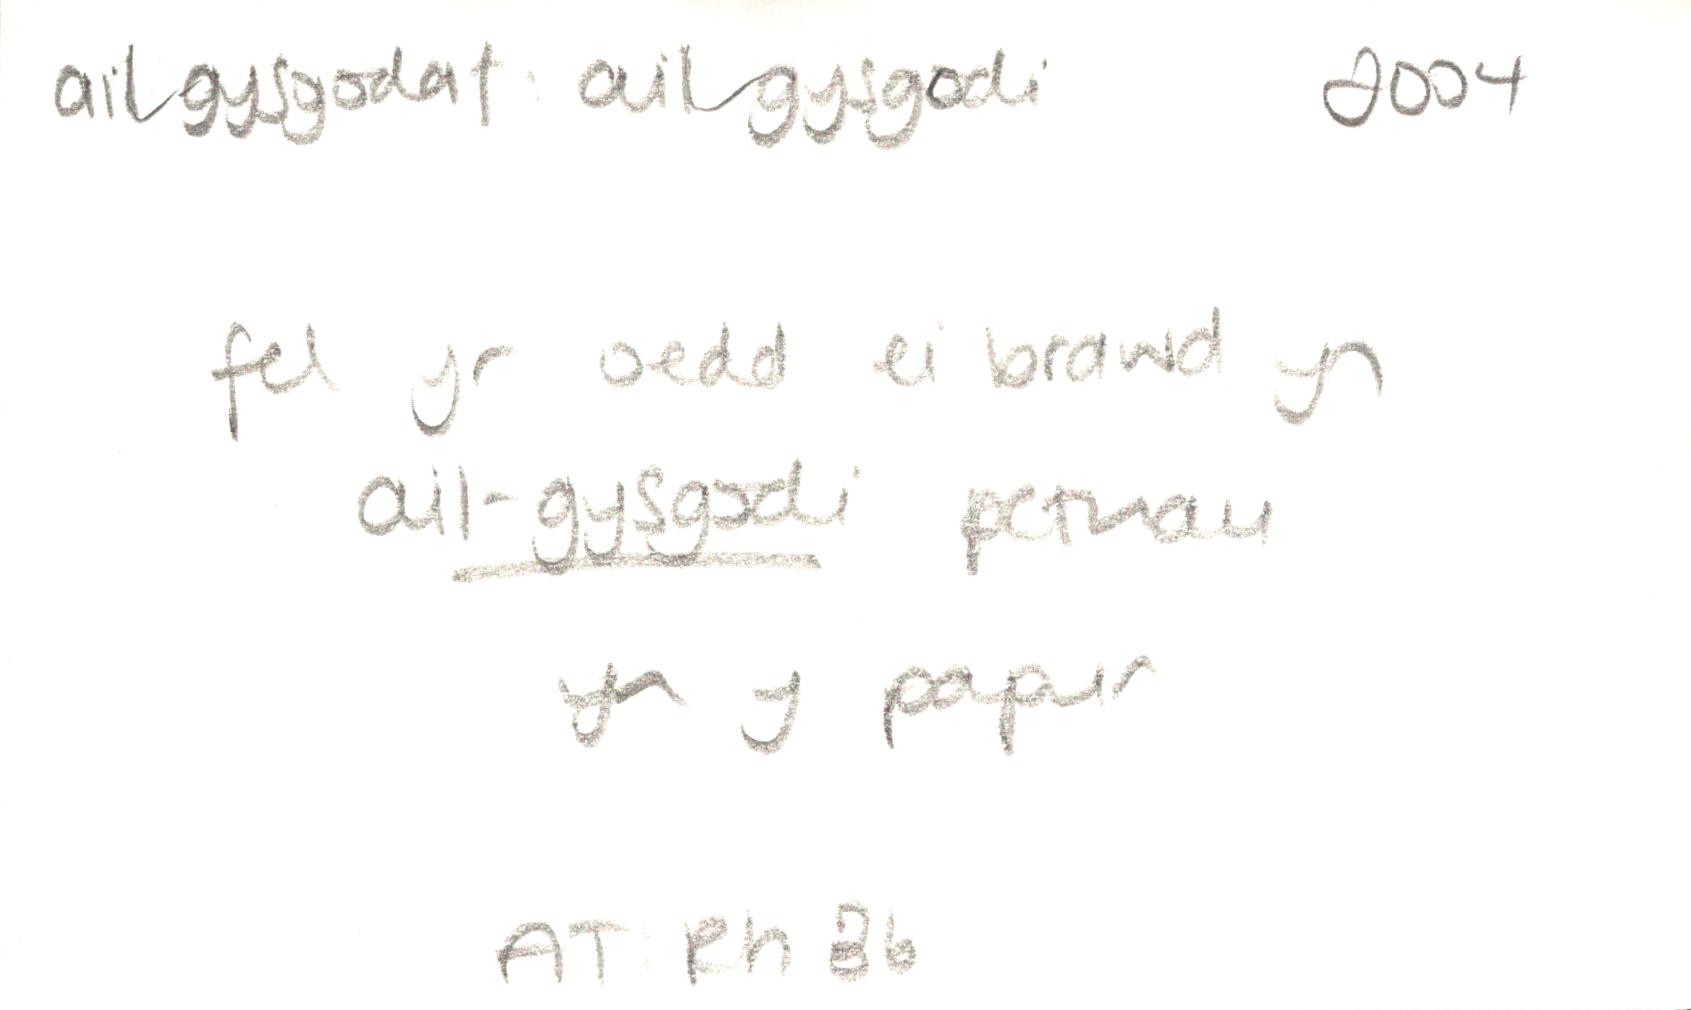 ailgysgodaf: ailgysgodi 2004
fel yr oedd ei brawd yn
ail-gysgodi pethau
yn y papur
AT: Rh 86